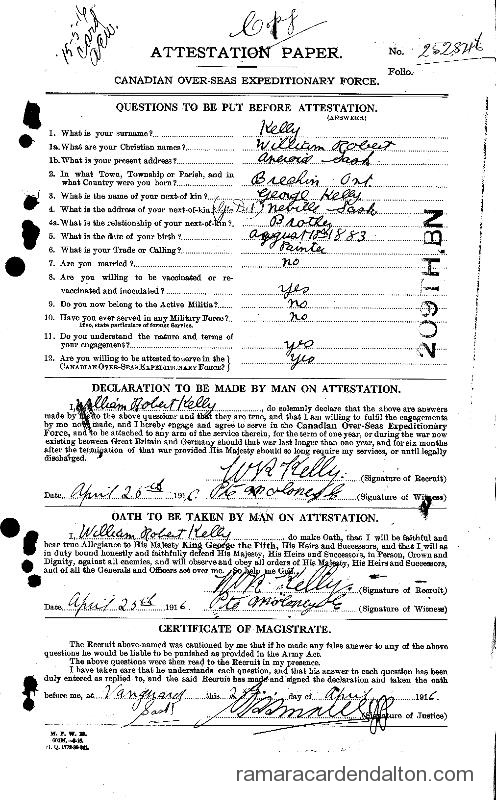 15-5-16
Card
ATTESTATION PAPER.
No. 252846
Folio.
CANADIAN OVER-SEAS EXPEDITIONARY FORCE.
QUESTIONS TO BE PUT BEFORE ATTESTATION.
(ANSWERS)
1. What is your surname? Kelly
1a. What are your Christian names? William Robert
1b. What is your present address? Aneroid Sask
2. In what Town, Township or Parish, and in
what Country were you born? Brechin Ont
3. What is the name of your next-of-kin? George Kelly
4. What is the address of your next-of-kin? Neville Sask
4a. What is the relationship of your next-of-kin? Brother
5. What is the date of your birth? August 1883
6. What is your Trade or Calling? Painter
7. Are you married? no
8. Are you willing to be vaccinated or re-
vaccinated and inoculated? yes
9. Do you now belong to the Active Militia? no
10. Have you ever served in any Military Force? no
If so, state particulars of former Service.
11. Do you understand the nature and terms of
your engagement? yes
12. Are you willing to be attested to serve in the
CANADIAN OVER-SEAS EXPEDITIONARY FORCE? yes
209TH.BN
DECLARATION TO BE MADE BY MAN ON ATTESTATION.
I, William Robert Kelly, do solemnly declare that the above are answers
made by me to the above questions and that they are true, and that I am willing to fulfil the engagements
by me now made, and I hereby engage and agree to serve in the Canadian Over-Seas Expeditionary
Force, and to be attached to any arm of the service therein, for the term of one year, or during the war now
existing between Great Britain and Germany should that war last longer than one year, and for six months
after the termination of that war provided His Majesty should so long require my services, or until legally
discharged.
W R Kelly (Signature of Recruit)
Date April 25th 1916 (Signature of Witness)
OATH TO BE TAKEN BY MAN ON ATTESTATION.
I, William Robert Kelly, do make Oath, that I will be faithful and
bear true Allegiance to His Majesty King George the Fifth, His Heirs and Successors, and that I will as
in duty bound honestly and faithfully defend His Majesty, His Heirs and Successors, in Person, Crown and
Dignity, against all enemies, and will observe and obey all orders of His Majesty, His Heirs and Successors,
and of all the Generals and Officers set over me. So help me God.
W R Kelly (Signature of Recruit)
Date April 25th 1916 (Signature of Witness)
CERTIFICATE OF MAGISTRATE.
The Recruit above-named was cautioned by me that if he made any false answer to any of the above
questions he would be liable to be punished as provided in the Army Act.
The above questions were then read to the Recruit in my presence.
I have taken care that he understands each question, and that his answer to each question has been
duly entered as replied to, and the said Recruit has made and signed the declaration and taken the oath
before me, at Vanguard this day of April 1916
Sask
(Signature of Justice)
M. F. W. 23.
ramaracardendalton.com